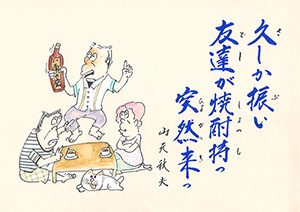 久しか振い
友達が焼酎持っ
突然来っ